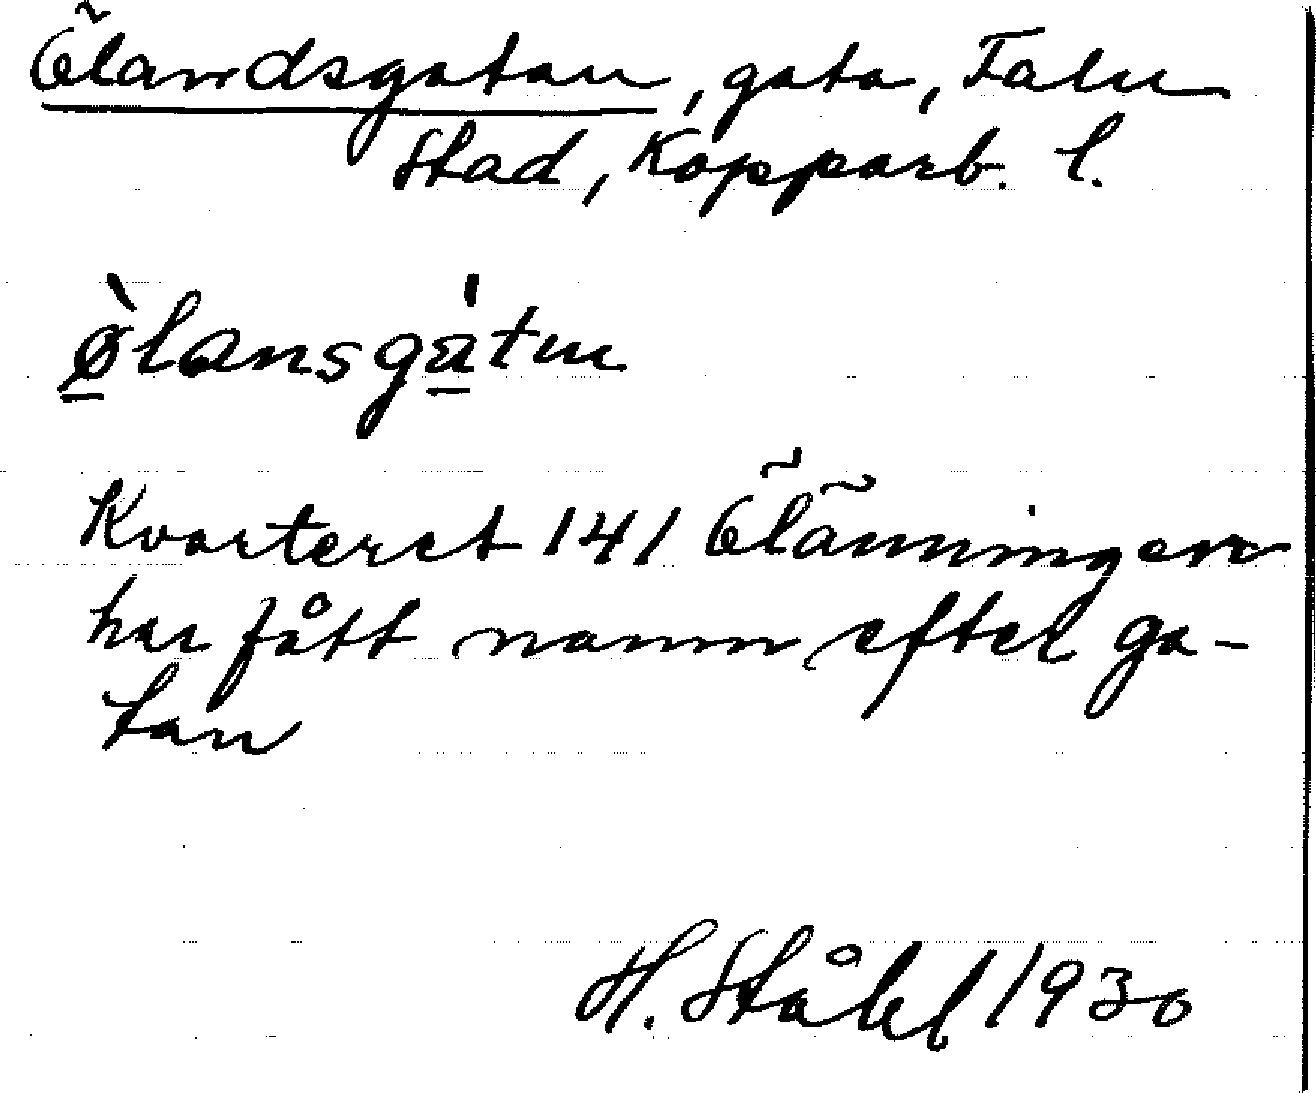 Ölandsgatan, gata, Falu
Stad, Kopparb. l.
ø̀lansgа̍tn
Kvarteret 141 Ölänningen
har fått namn efter ga-
tan
H. Ståhl 1930